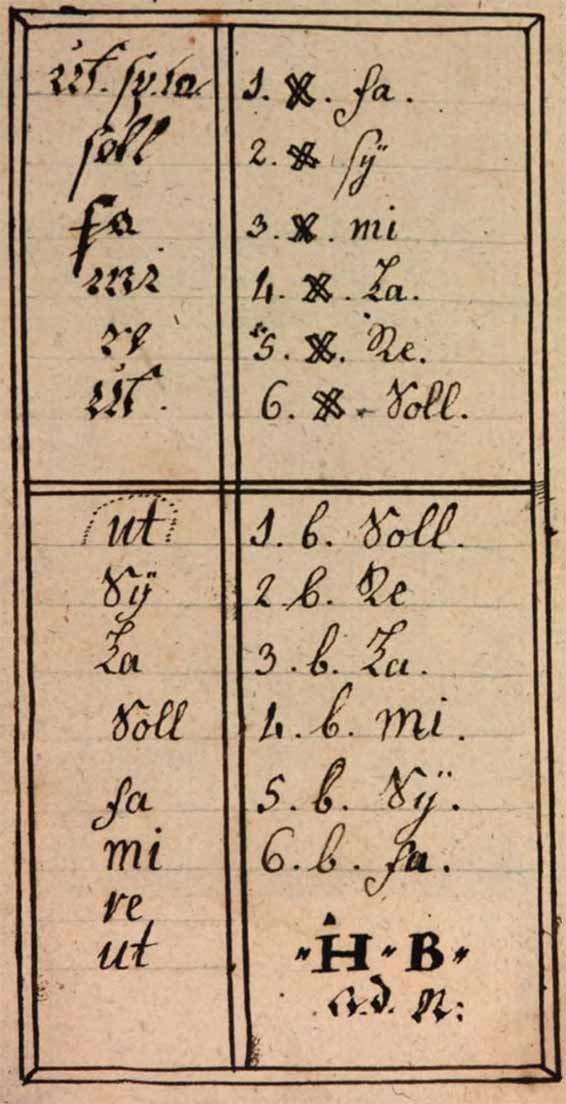 ut. sy. la.
soll
fa
mi
re
ut.
1. ※. fa.
2. ※ sÿ
3. ※. mi
4. ※. La.
5. ※. Re.
6. ※. Soll.
ut
Sÿ
La
Soll
fa
mi
re
ut
1. b. Soll.
2 b. Re
3. b. La.
4. b. mi.
5. b. Sÿ.
6. b. fa.
H B